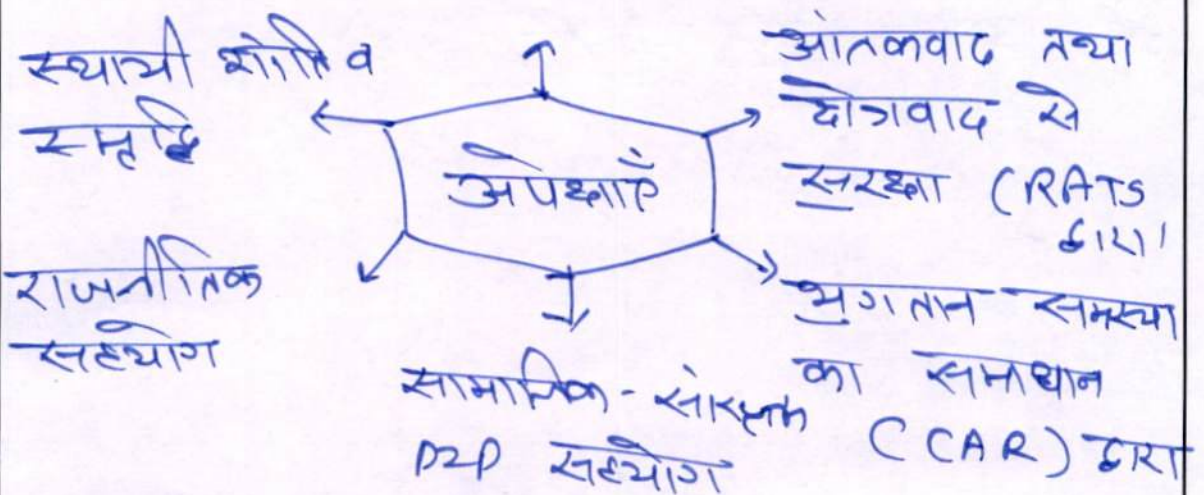 स्थायी शांति व
समृद्धि
राजनीतिक
सहयोग
अपेक्षाएँ
आंतकवाद तथा
क्षेत्रवाद से
सुरक्षा (RATS
द्वारा)
भुगतान समस्या
का समाधान
(CAR) द्वारा
सामाजिक - सांस्कृतिक
P2P सहयोग